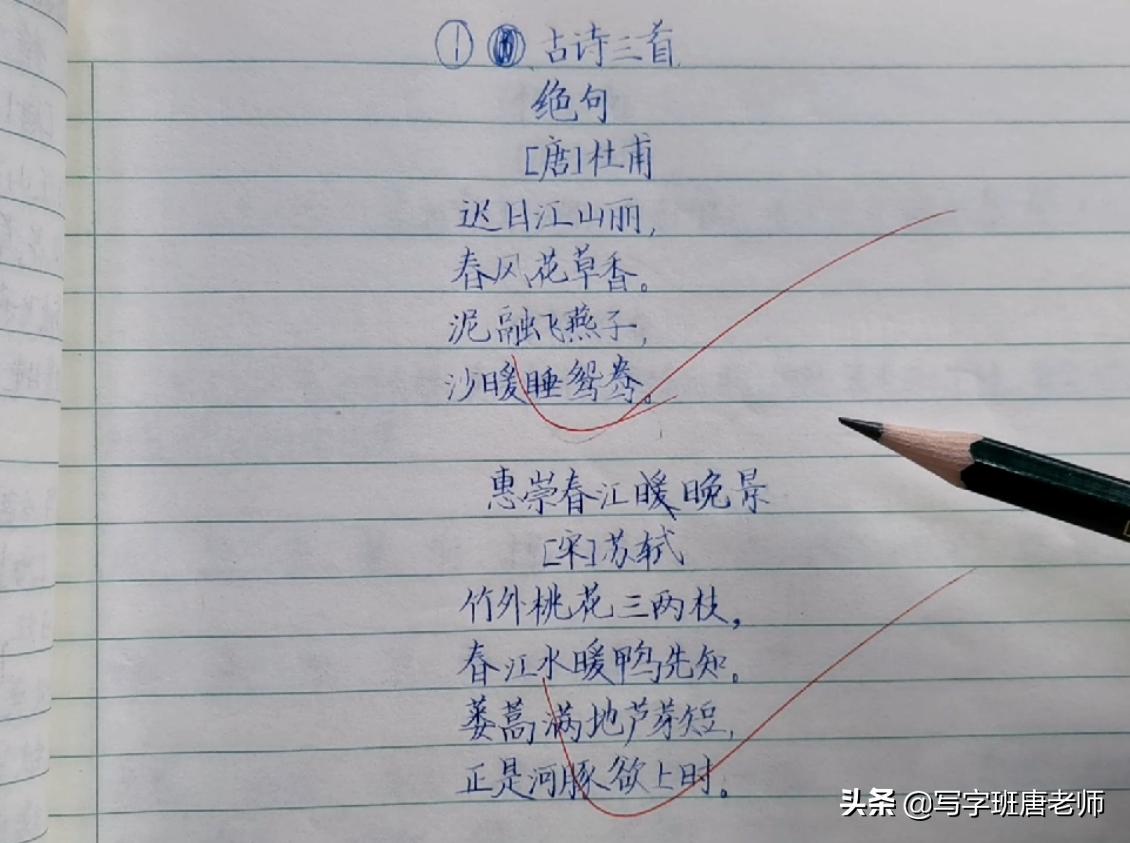 ① 古诗三首
绝句
[唐]杜甫
迟日江山丽,
春风花草香。
泥融飞燕子,
沙暖睡鸳鸯。
惠崇春江暖晚景
[宋]苏轼
竹外桃花三两枝,
春江水暖鸭先知。
蒌蒿满地芦芽短,
正是河豚欲上时。
头条 @写字班唐老师